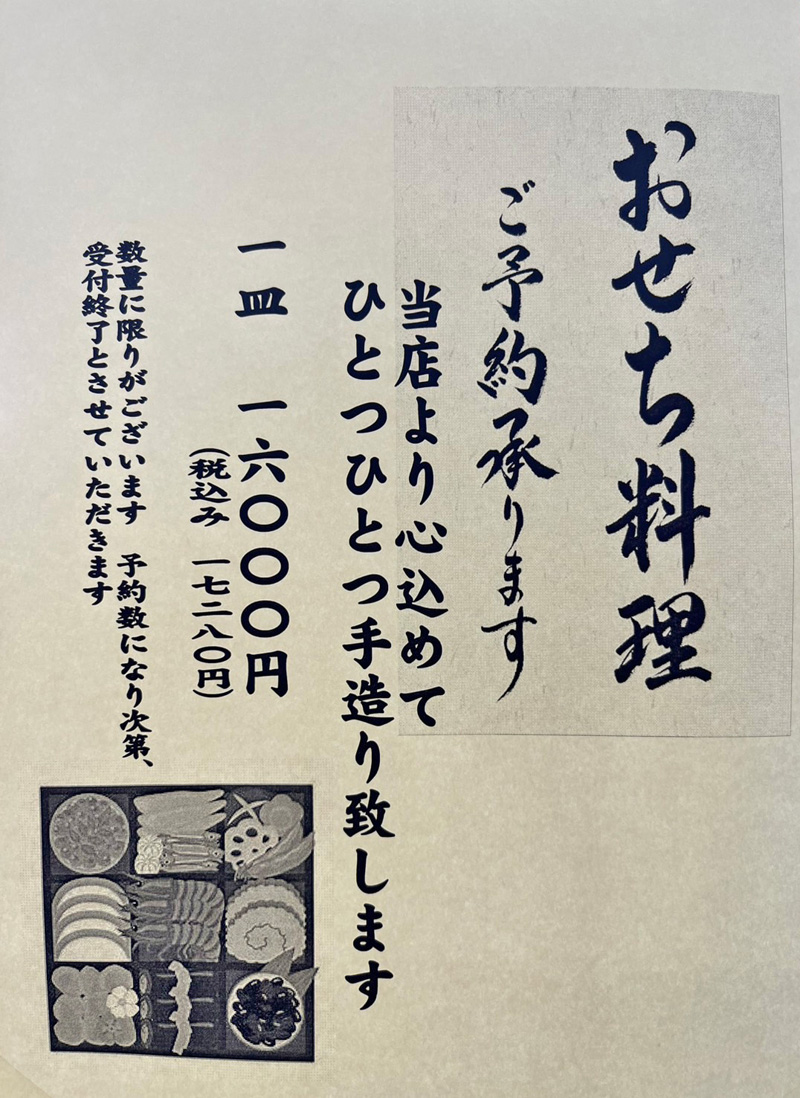 おせち料理
ご予約承ります
当店より心込めて
ひとつひとつ手造り致します
一皿 一六〇〇〇円
(税込み 一七二八〇円)
数量に限りがございます 予約数になり次第、
受付終了とさせていただきます